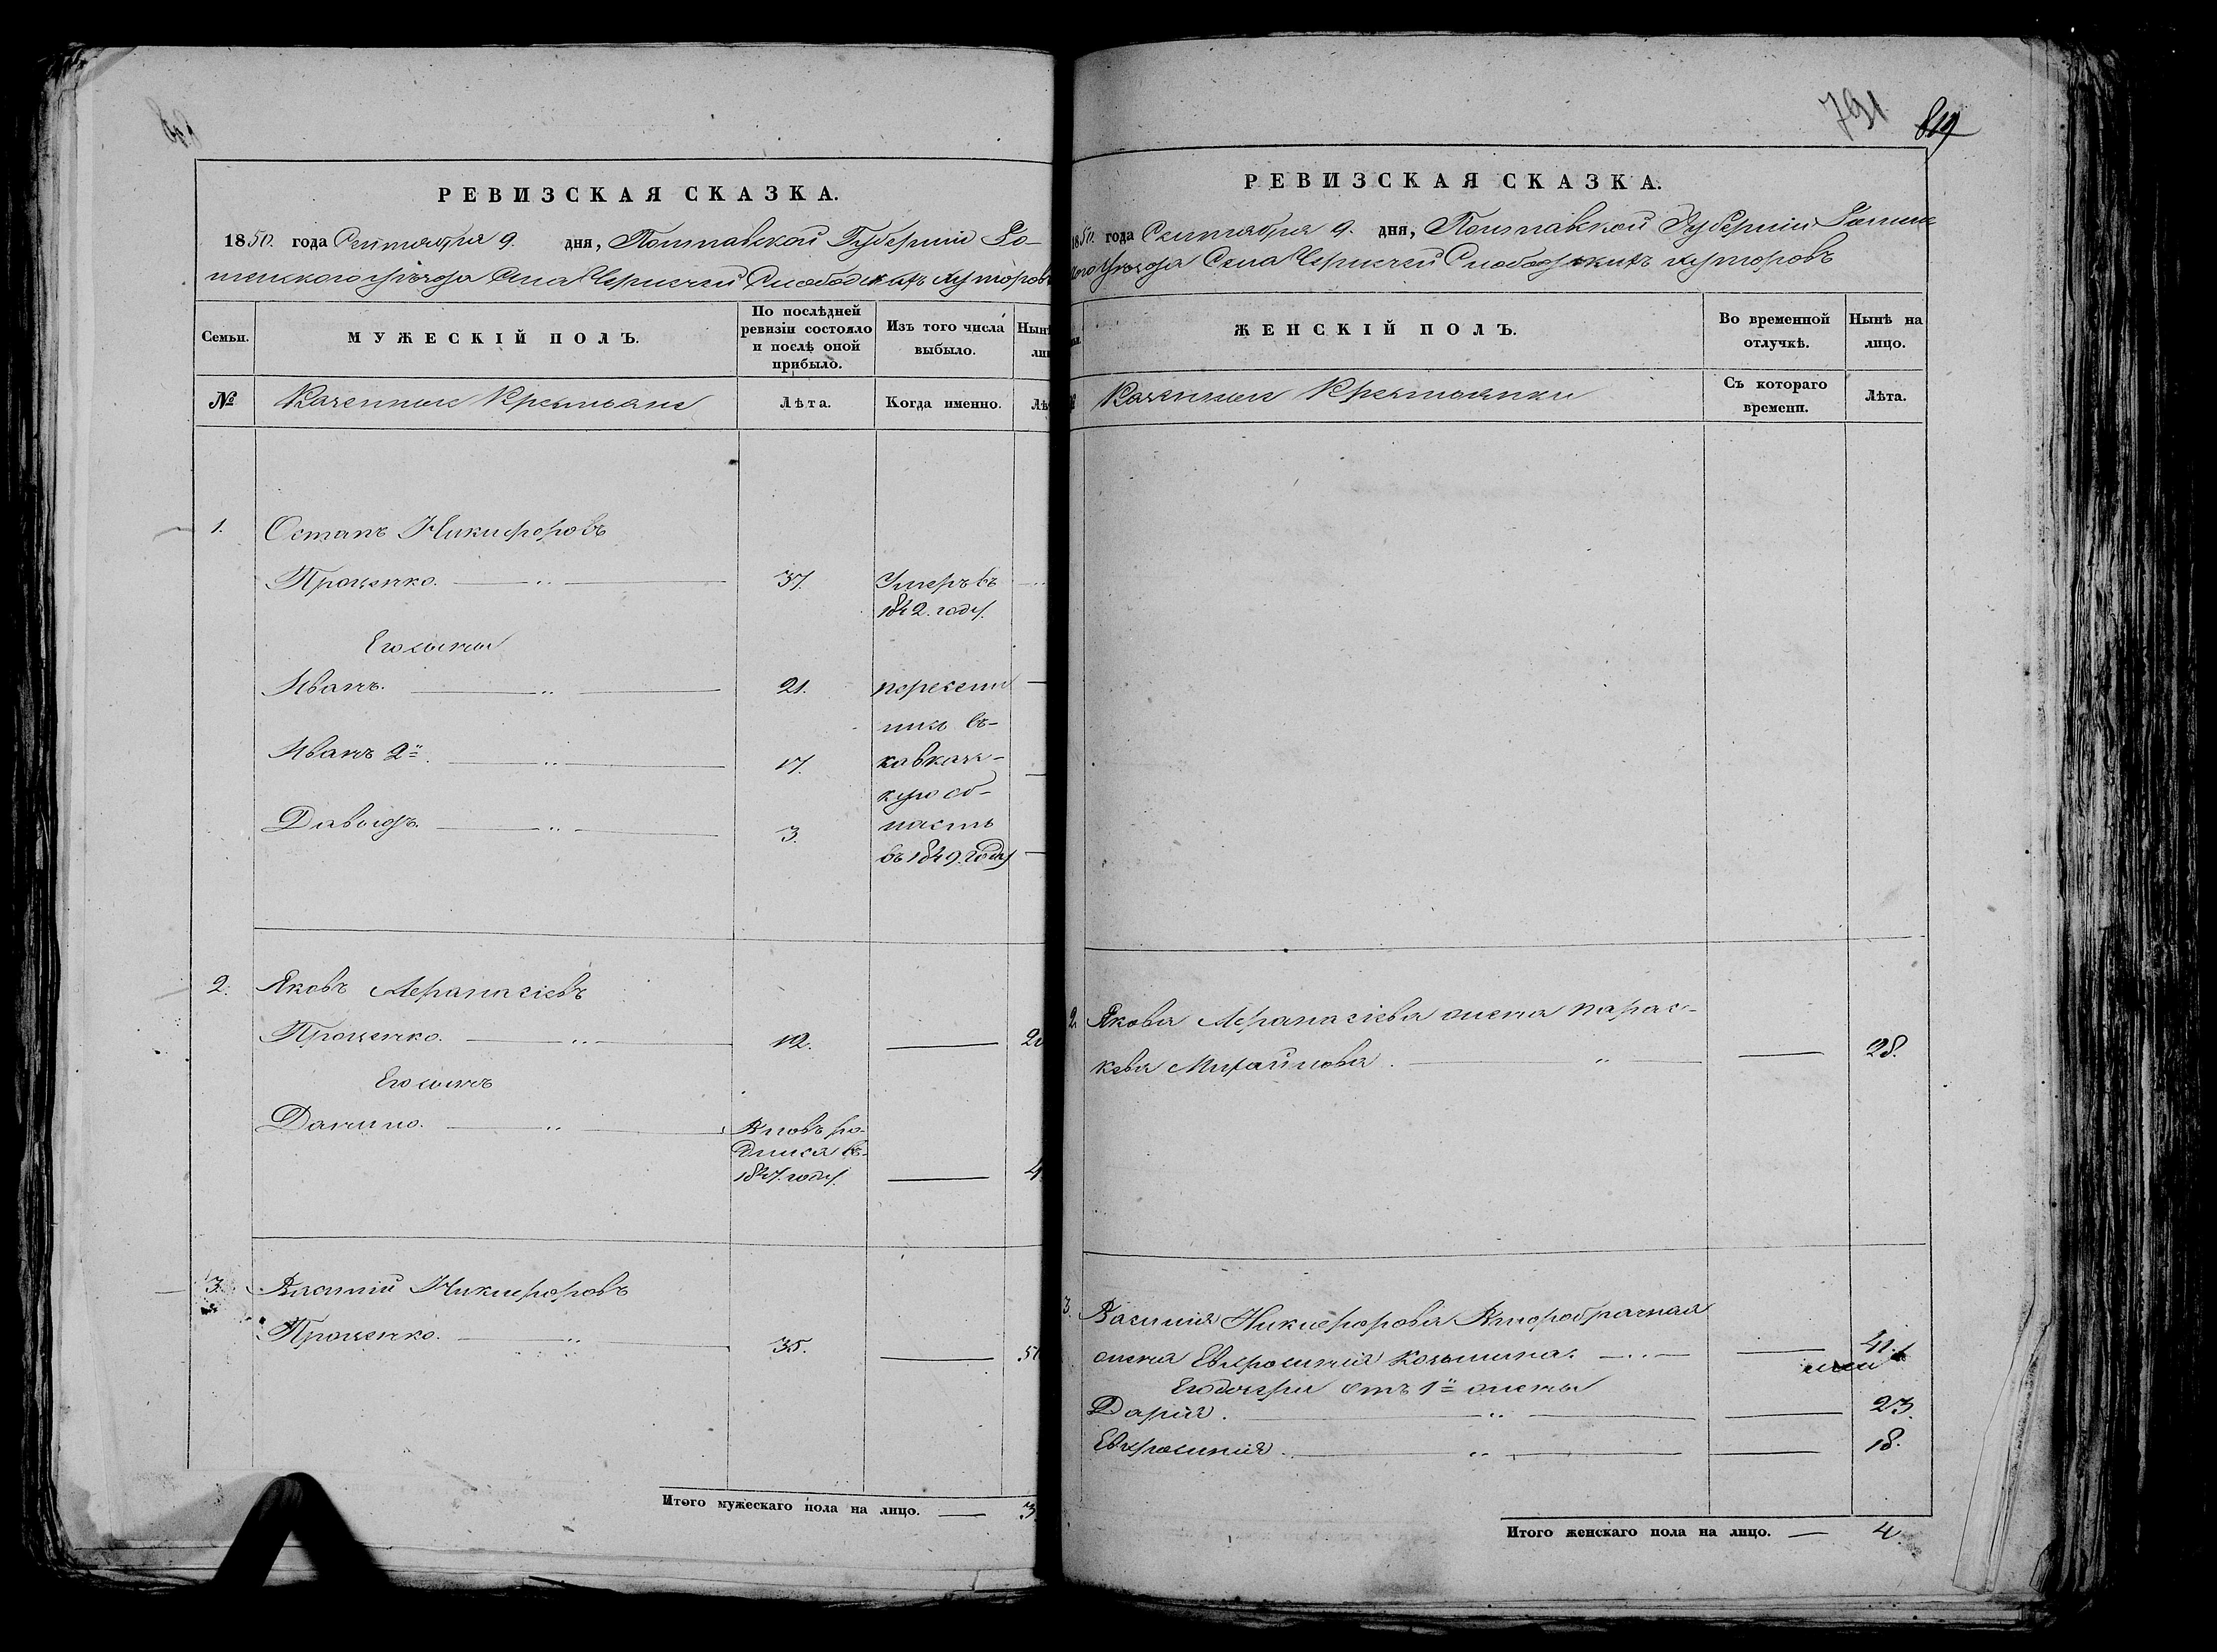 РЕВИЗСКАЯ СКАЗКА.
1850. года Сентября 9. дня, Полтавской Губерніи Ро-
менского уѣзда Села Чернечей Слободскихъ хуторовъ
Семьи.
МУЖЕСКІЙ ПОЛЪ.
По послѣдней
ревизіи состояло
и послѣ оной
прибыло.
Изъ того числа
выбыло.
№
Казенные Крестьяне
Лѣта.
Когда именно.
1. Остапъ Никифоровъ
Проценко. 37. Умеръ въ
1842. году.
Его сыны
Иванъ. 21. пересели
лись въ-
Иванъ 2й. 17. кавказс-
кую об-
Давыдъ. 3. ласть
въ 1849. году
2. Яковъ Афанасіевъ
Проценко. 12.
Его сынъ
Данило. Вновь ро-
дился въ-
1847. году. 4
3. Василій Никифоровъ
Проценко. 35.
Итого мужескаго пола на лицо. 3
791 819
РЕВИЗСКАЯ СКАЗКА.
1850. года Сентября 9. дня, Полтавской Губерніи Ромен
ского Уѣзда Села Чернечей Слободскихъ хуторовъ
ЖЕНСКІЙ ПОЛЪ.
Во временной
отлучкѣ.
Нынѣ на
лицо.
Казенные Крестьянки
Съ котораго
времени.
Лѣта.
2. Якова Афанасіева жена Парас-
кева Михайлова. 28.
3. Василія Никифорова Второбрачная
жена Евфросинія Козьмина. 41.
Его дочери отъ 1й жены
Дарія. 23.
Евфросинія. 18.
Итого женскаго пола на лицо. 4.